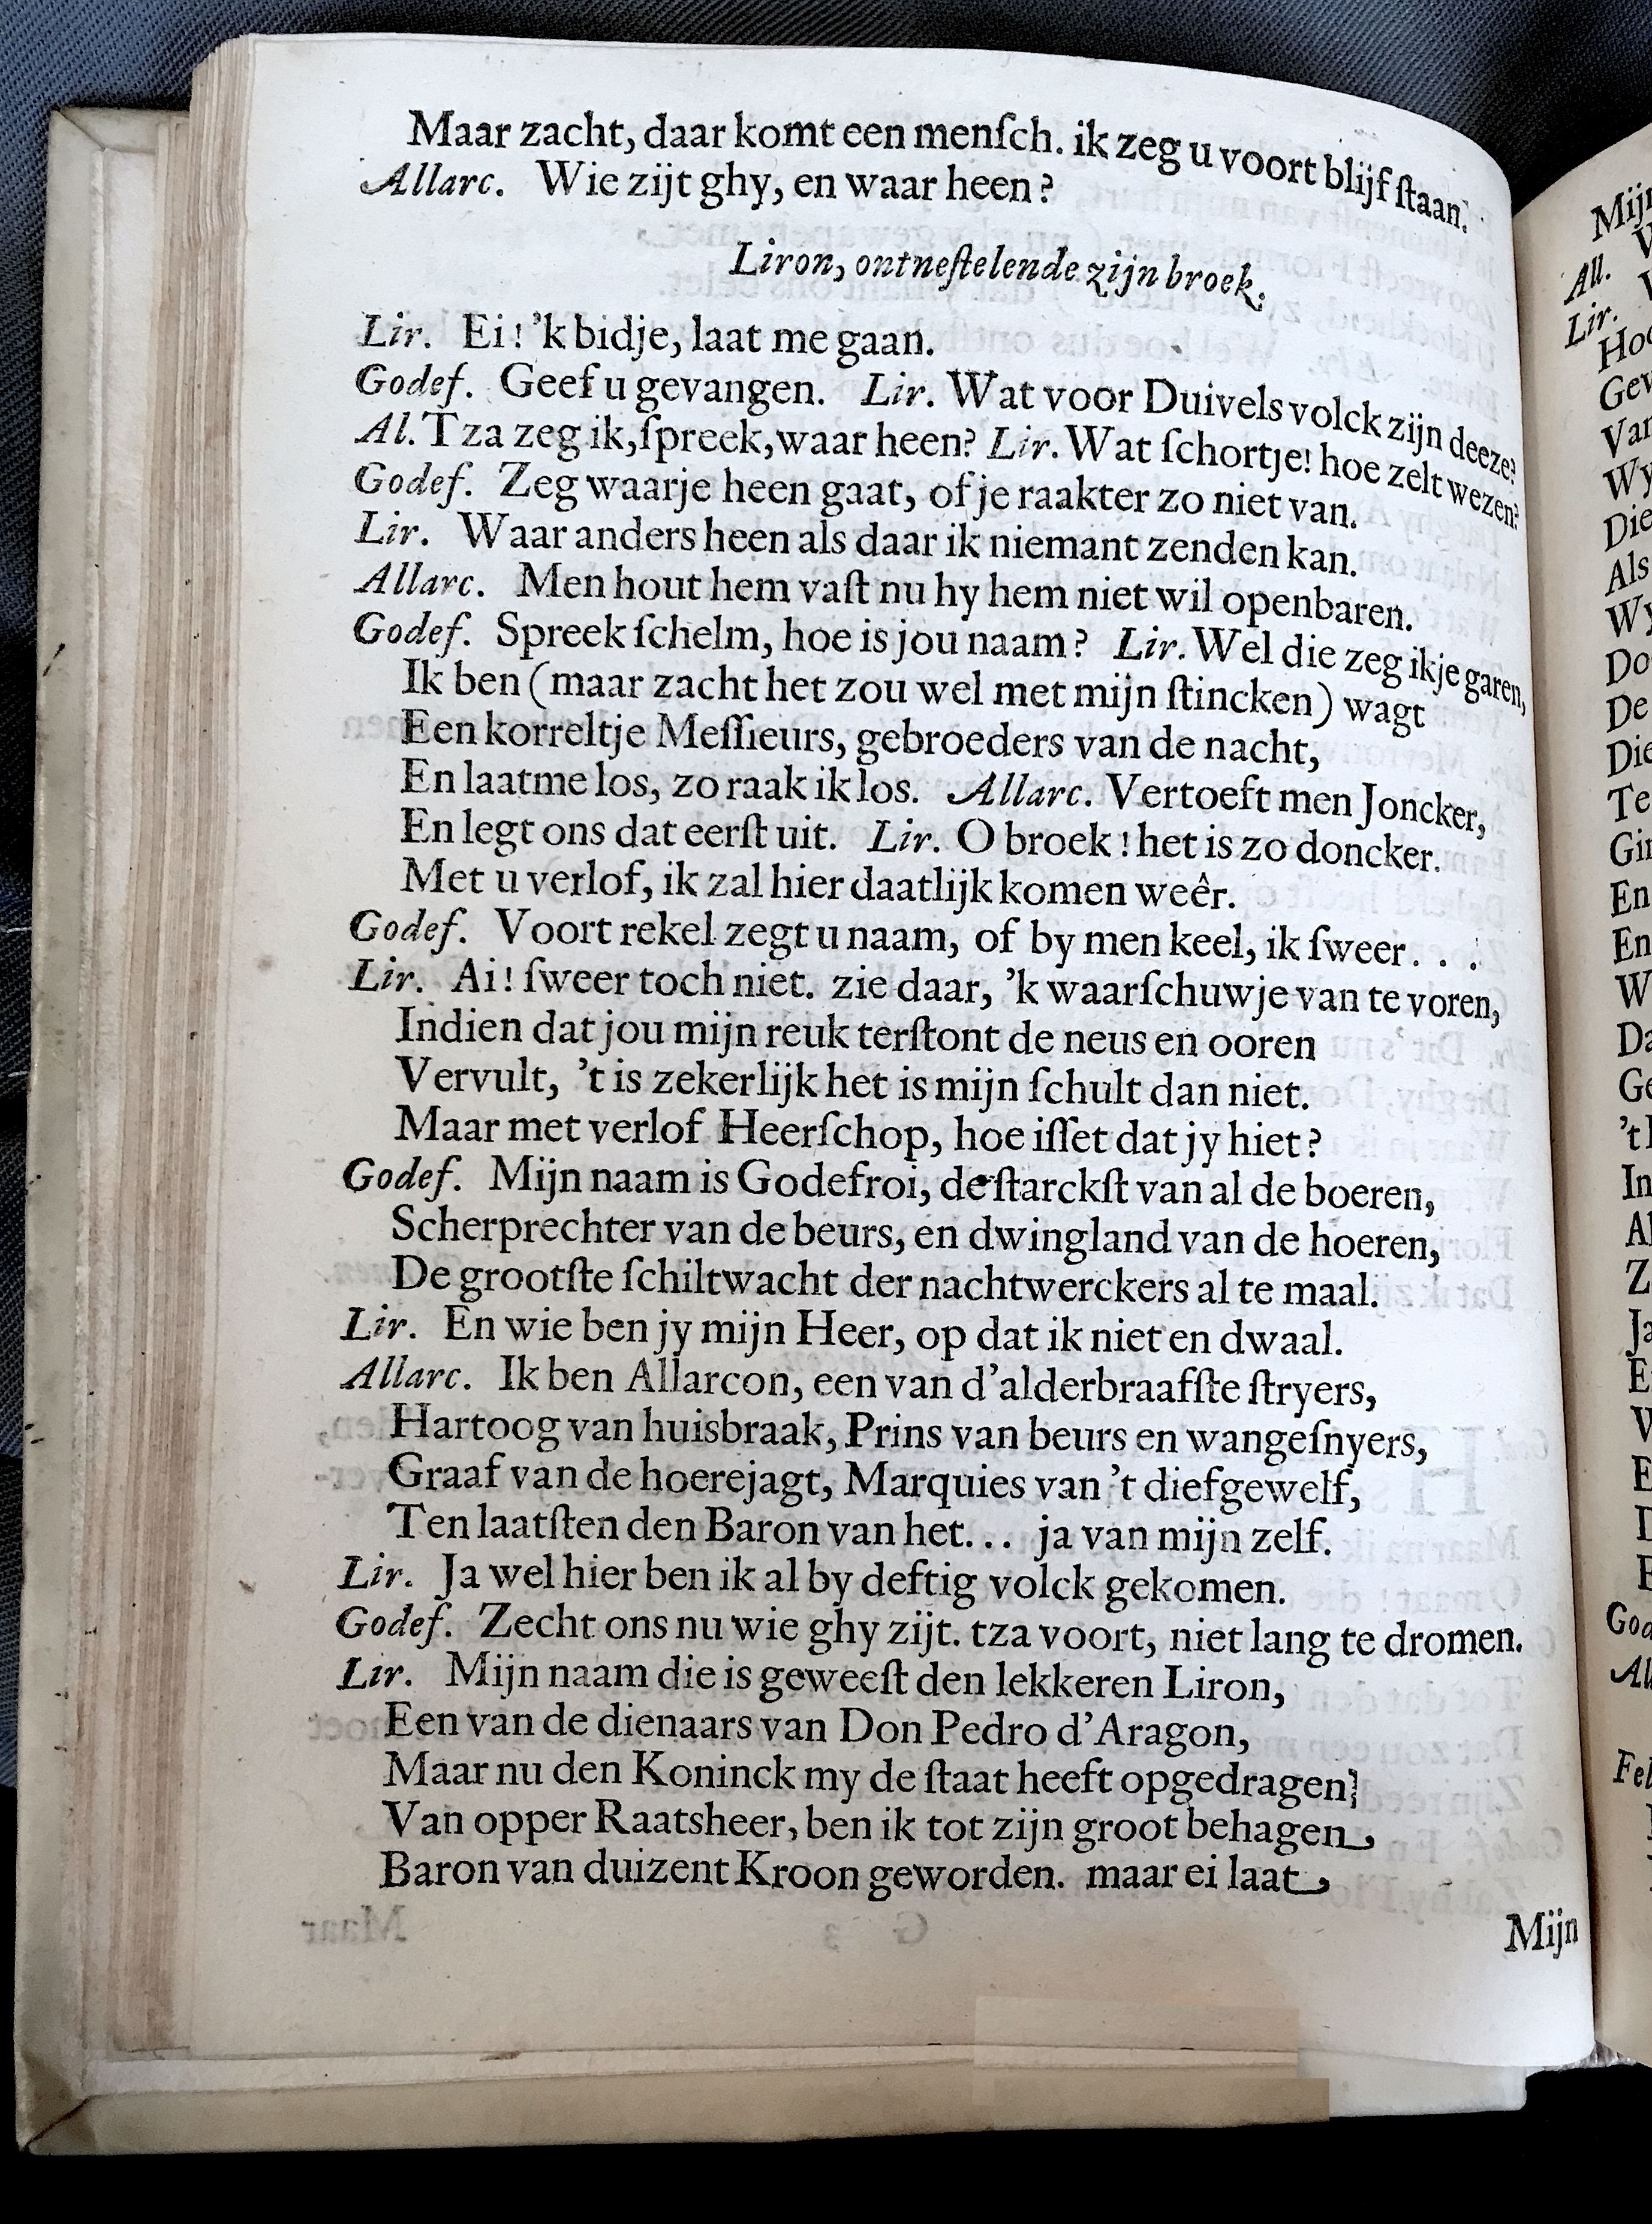 Maar zacht, daar komt een menſch. ik zeg u voort blijf ſtaan.
Allarc. Wie zijt ghy, en waar heen?
Liron, ontneſtelende zijn broek.
Lir. Ei! 'k bidje, laat me gaan.
Godef. Geef u gevangen. Lir. Wat voor Duivels volck zijn deeze?
Al. Tza zeg ik, ſpreek, waar heen? Lir. Wat ſchortje! hoe zelt wezen?
Godef. Zeg waarje heen gaat, of je raakter zo niet van.
Lir. Waar anders heen als daar ik niemant zenden kan.
Allarc. Men hout hem vaſt nu hy hem niet wil openbaren.
Godef. Spreek ſchelm, hoe is jou naam? Lir. Wel die zeg ikje garen,
Ik ben (maar zacht het zou wel met mijn ſtincken) wagt
Een korreltje Meſſieurs, gebroeders van de nacht,
En laatme los, zo raak ik los. Allarc. Vertoeft men Joncker,
En legt ons dat eerſt uit. Lir. O broek! het is zo doncker.
Met u verlof, ik zal hier daatlijk komen weêr.
Godef. Voort rekel zegt u naam, of by men keel, ik ſweer. . .
Lir. Ai! ſweer toch niet. zie daar, 'k waarſchuwje van te voren,
Indien dat jou mijn reuk terſtont de neus en ooren
Vervult, 't is zekerlijk het is mijn ſchult dan niet.
Maar met verlof Heerſchop, hoe iſſet dat jy hiet?
Godef. Mijn naam is Godefroi, de ſtarckſt van al de boeren,
Scherprechter van de beurs, en dwingland van de hoeren,
De grootſte ſchiltwacht der nachtwerckers al te maal.
Lir. En wie ben jy mijn Heer, op dat ik niet en dwaal.
Allarc. Ik ben Allarcon, een van d'alderbraafſte ſtryers,
Hartoog van huisbraak, Prins van beurs en wangeſnyers,
Graaf van de hoerejagt, Marquies van 't diefgewelf,
Ten laatſten den Baron van het... ja van mijn zelf.
Lir. Ja wel hier ben ik al by deftig volck gekomen.
Godef. Zecht ons nu wie ghy zijt. tza voort, niet lang te dromen.
Lir. Mijn naam die is geweeſt den lekkeren Liron,
Een van de dienaars van Don Pedro d'Aragon,
Maar nu den Koninck my de ſtaat heeft opgedragen]
Van opper Raatsheer, ben ik tot zijn groot behagen
Baron van duizent Kroon geworden. maar ei laat
Mijn